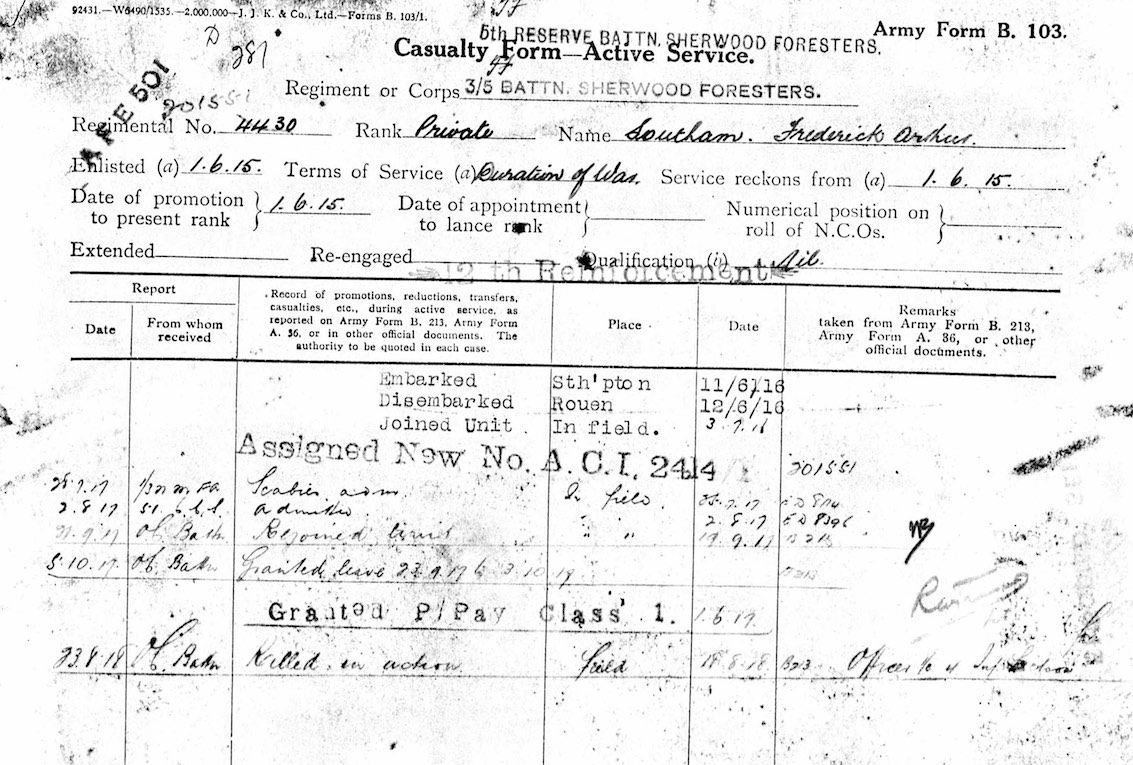 92431.—W6490/1535.—2,000,000—J. J. K. & Co., Ltd.—Forms B. 103/1.
Army Form B. 103.
D
281
5th RESERVE BATTN. SHERWOOD FORESTERS.
Casualty Form—Active Service.
Regiment or Corps 3/5 BATTN. SHERWOOD FORESTERS.
A F E 501
201551
Regimental No. 4430 Rank Private Name Southam. Frederick Arthur.
Enlisted (a) 1.6.15. Terms of Service (a) Duration of War. Service reckons from (a) 1.6.15.
Date of promotion to present rank 1.6.15. Date of appointment to lance rank Numerical position on roll of N.C.Os.
Extended Re-engaged Qualification (i) Nil.
12th Reinforcement
Report
Date
From whom received
Record of promotions, reductions, transfers, casualties, etc., during active service, as reported on Army Form B. 213, Army Form A. 36, or in other official documents. The authority to be quoted in each case.
Place
Date
Remarks
taken from Army Form B. 213, Army Form A. 36, or other official documents.
Embarked Sth'pton 11/6/16
Disembarked Rouen 12/6/16
Joined Unit. In field. 3.7.16
Assigned New No. A.C.I. 2414 201551
Scabies adm In field
2.8.17 admitted " 2.8.17
Of Battn Rejoined Unit " " 17.9.17
5.10.17 Of Battn Granted leave 3.10.17
Granted P/Pay Class 1. 1.6.17
23.8.18 Of Battn Killed in action Field 18.8.18 B213 Officer